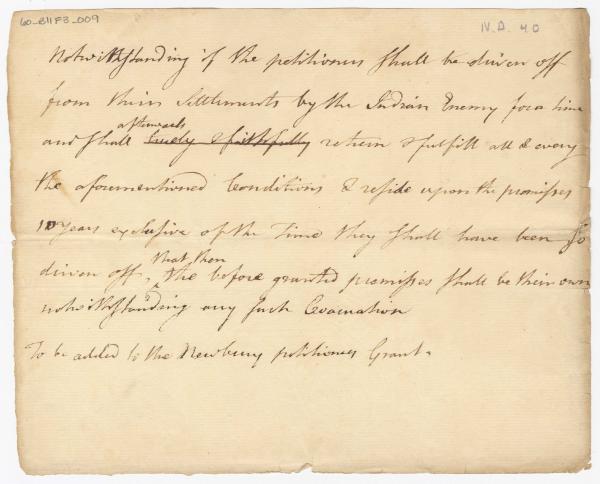 60-B11F3-009
IV. D. 40
Notwithstanding if the petitioners shall be driven off
from their Settlements by the Indian Enemy for a time
and shall afterwards truely & faithfully return & fulfill all & every
the aforementioned Conditions & reside upon the premisses
10 years exclusive of the Time they shall have been so
driven off, that then the before granted premisses shall be their own
notwithstanding any such Evacuation
To be added to the Newbury petitioners Grant.